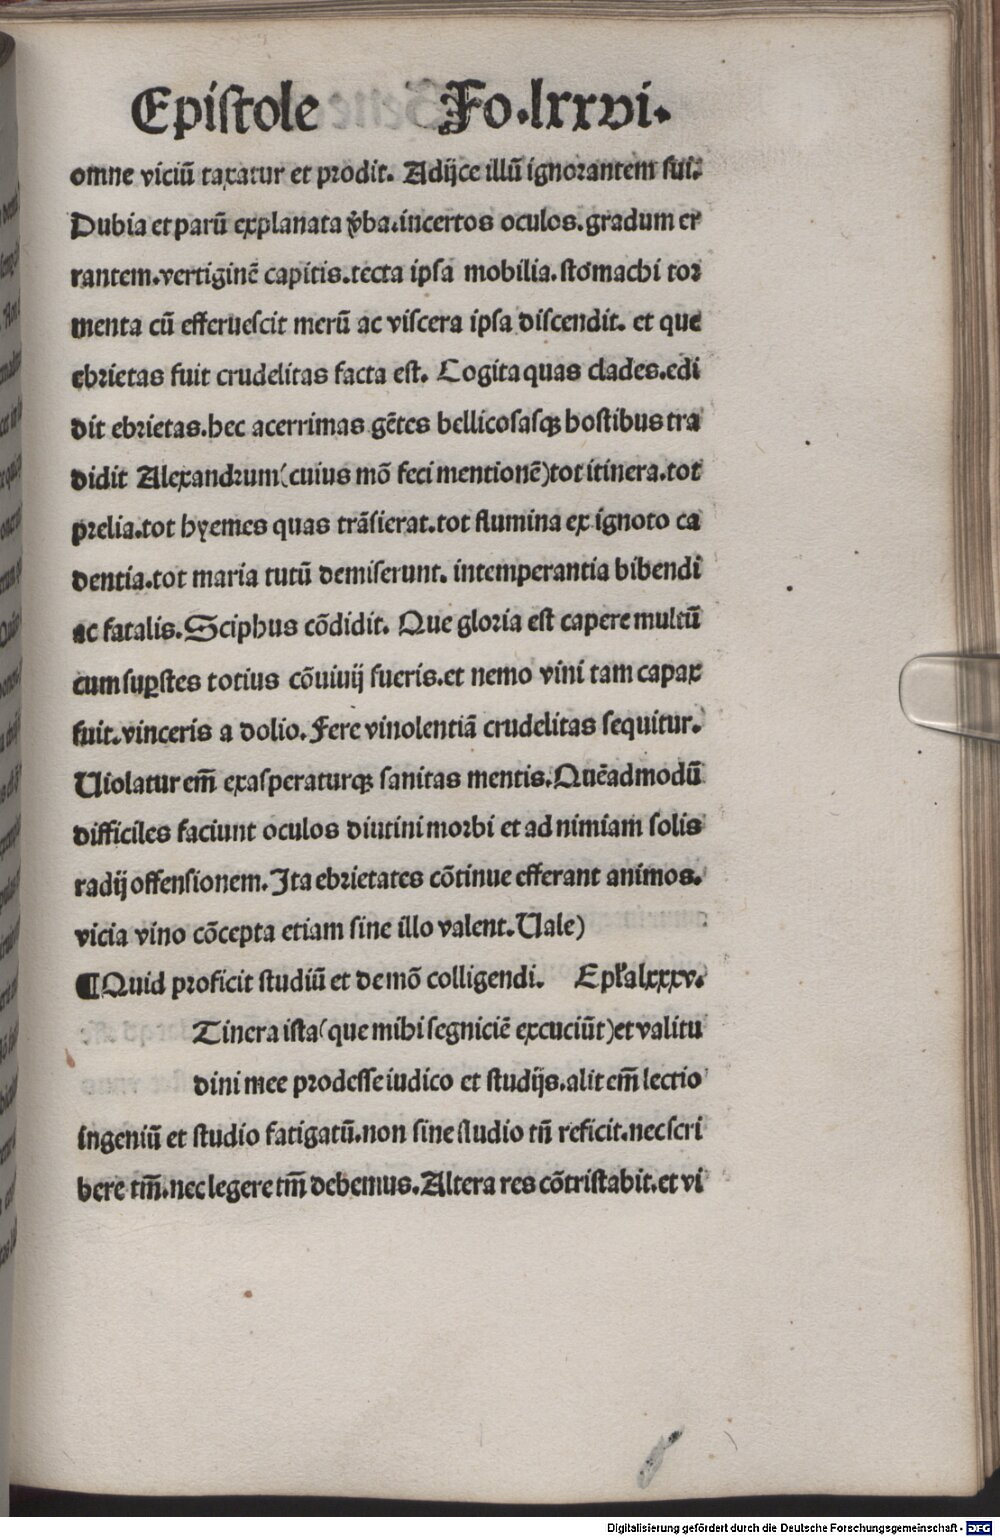 Epistole Fo.lxxvi.
omne viciū taxatur et prodit. Adijce illū ignorantem sui.
Dubia et parū explanata v̾ba.incertos oculos.gradum er
rantem.vertiginē capitis.tecta ipsa mobilia.stomachi tor
menta cū efferuescit merū ac viscera ipsa discendit. et que
ebrietas fuit crudelitas facta est. Cogita quas clades.edi
dit ebrietas.hec acerrimas gētes bellicosasqꝫ hostibus tra
didit Alexandrum(cuius mō feci mentionē)tot itinera.tot
prelia.tot hyemes quas trāsierat.tot flumina ex ignoto ca
dentia.tot maria tutū demiserunt. intemperantia bibendi
ac fatalis.Sciphus cōdidit. Que gloria est capere multū
cum suꝑstes totius cōuiuij fueris.et nemo vini tam capax
fuit.vinceris a dolio. Fere vinolentiā crudelitas sequitur.
Uiolatur em̄ exasperaturqꝫ sanitas mentis.Quēadmodū
difficiles faciunt oculos diutini morbi et ad nimiam solis
radij offensionem.Ita ebrietates cōtinue efferant animos.
vicia vino cōcepta etiam sine illo valent.Uale)
¶Quid proficit studiū et de mō colligendi. Epl̾a lxxxv.
Tinera ista(que mihi segniciē excuciūt)et valitu
dini mee prodesse iudico et studijs.alit em̄ lectio
ingeniū et studio fatigatū.non sine studio tn̄ reficit.nec scri
bere tm̄.nec legere tm̄ debemus.Altera res cōtristabit.et vi
Digitalisierung gefördert durch die Deutsche Forschungsgemeinschaft - DFG